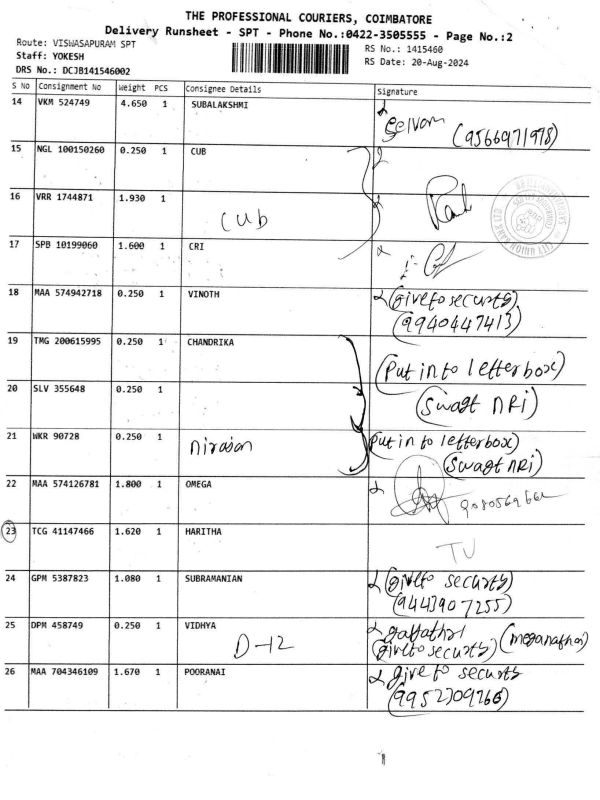 THE PROFESSIONAL COURIERS, COIMBATORE
Delivery Runsheet - SPT - Phone No.:0422-3505555 - Page No.:2
Route: VISWASAPURAM SPT
RS No.: 1415460
Staff: YOKESH
RS Date: 20-Aug-2024
DRS No.: DCJB141546002
S No Consignment No Weight PCS Consignee Details Signature
14 VKM 524749 4.650 1 SUBALAKSHMI
Selvam (9566971978)
15 NGL 100150260 0.250 1 CUB
16 VRR 1744871 1.930 1
CUB
17 SPB 10199060 1.600 1 CRI
18 MAA 574942718 0.250 1 VINOTH
(give to security)
(9940447413)
19 TMG 200615995 0.250 1 CHANDRIKA
(Put in to letterbox)
20 SLV 355648 0.250 1
(Swagt NRi)
21 WKR 90728 0.250 1 Nirajan
(Put in to letterbox)
(Swagt NRi)
22 MAA 574126781 1.800 1 OMEGA
23 TCG 41147466 1.620 1 HARITHA
TU
24 GPM 5387823 1.080 1 SUBRAMANIAN
(give to security)
(9443907255)
25 DPM 458749 0.250 1 VIDHYA
D-12
(give to security)
26 MAA 704346109 1.670 1 POORANAI
give to security
(9952309266)